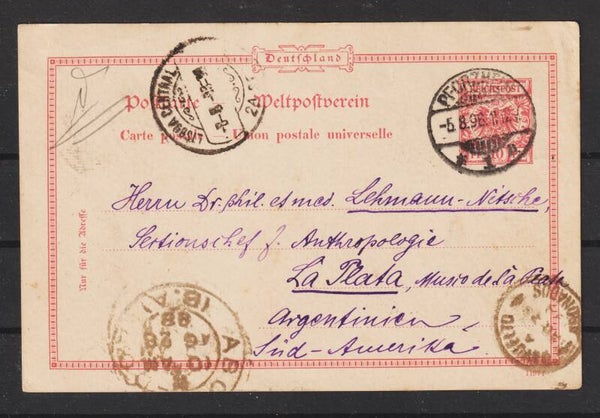 Deutschland
Postkarte Weltpostverein
Carte postale Union postale universelle
Nur für die Adresse
LISBOA CENTRAL
REICHSPOST
-5.8.98.
1
Herrn Dr. phil. et med. Lehmann-Nitsche,
Sectionschef f. Anthropologie
La Plata, Museo de La Plata
Argentinien,
Süd-Amerika.
(B.A)
98
AG
26